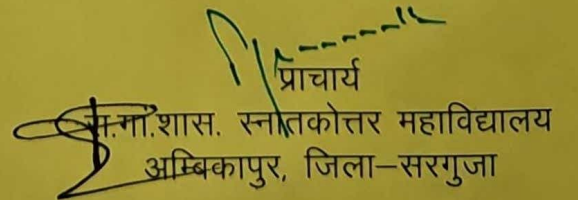 प्राचार्य
रा.गां.शास. स्नातकोत्तर महाविद्यालय
अम्बिकापुर, जिला–सरगुजा